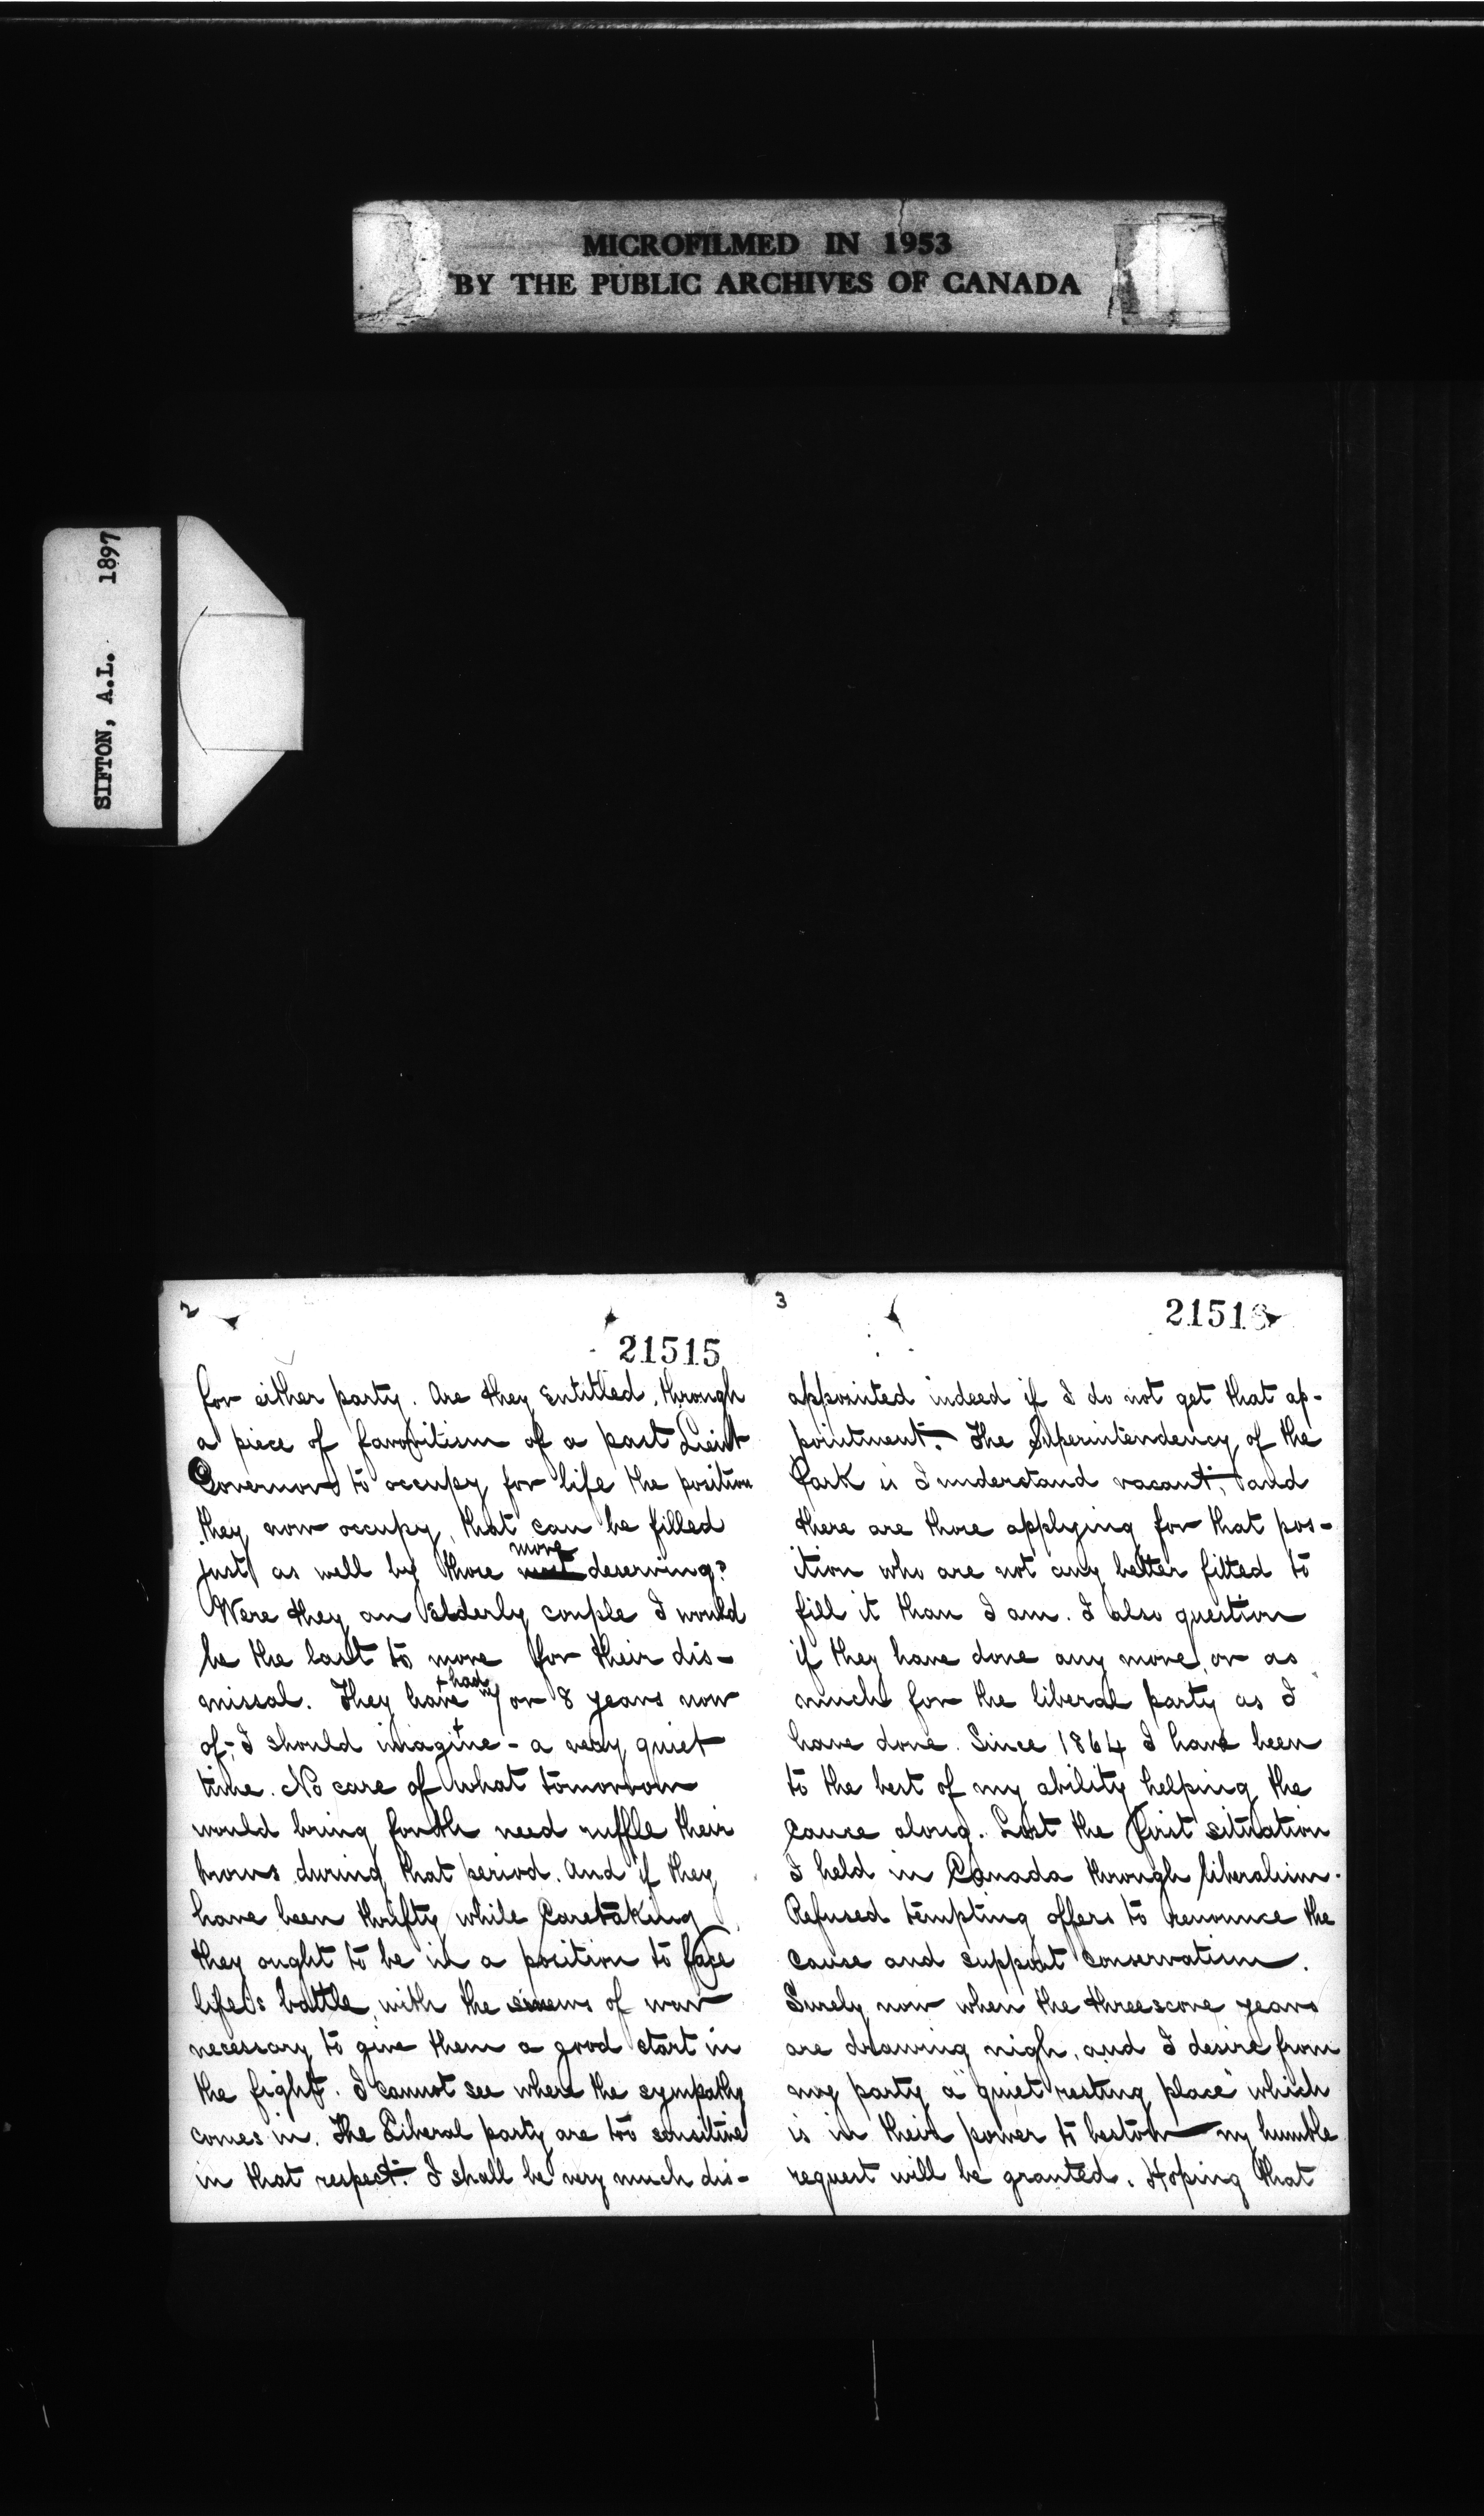 MICROFILMED IN 1953
BY THE PUBLIC ARCHIVES OF CANADA
SIFTON, A.L. 1897
2
21515
for either party. Are they entitled, through
a piece of favoritism of a past Lieut
Governor to occupy for life the position
they now occupy, that can be filled
just as well by those more deserving?
Were they an Elderly couple I would
be the last to move for their dis-
missal. They have + had 7 or 8 years now
of, I should imagine - a very quiet
time. No care of what tomorrow
would bring forth need ruffle their
brows during that period. And if they
have been thrifty while Caretaking
they ought to be in a position to face
life's battle with the sinews of war
necessary to give them a good start in
the fight. I cannot see where the sympathy
comes in. The Liberal party are too sensitive
in that respect. I shall be very much dis-
3
21516
appointed indeed if I do not get that ap-
pointment. The Superintendency of the
Park is I understand vacant, and
there are those applying for that pos-
ition who are not any better fitted to
fill it than I am. I also question
if they have done any more, or as
much for the liberal party as I
have done. Since 1864 I have been
to the best of my ability helping the
cause along. Lost the first situation
I held in Canada through liberalism.
Refused tempting offers to renounce the
cause and support Conservatism.
Surely now when the threescore years
are drawing nigh, and I desire from
my party a "quiet resting place" which
is in their power to bestow my humble
request will be granted. Hoping that